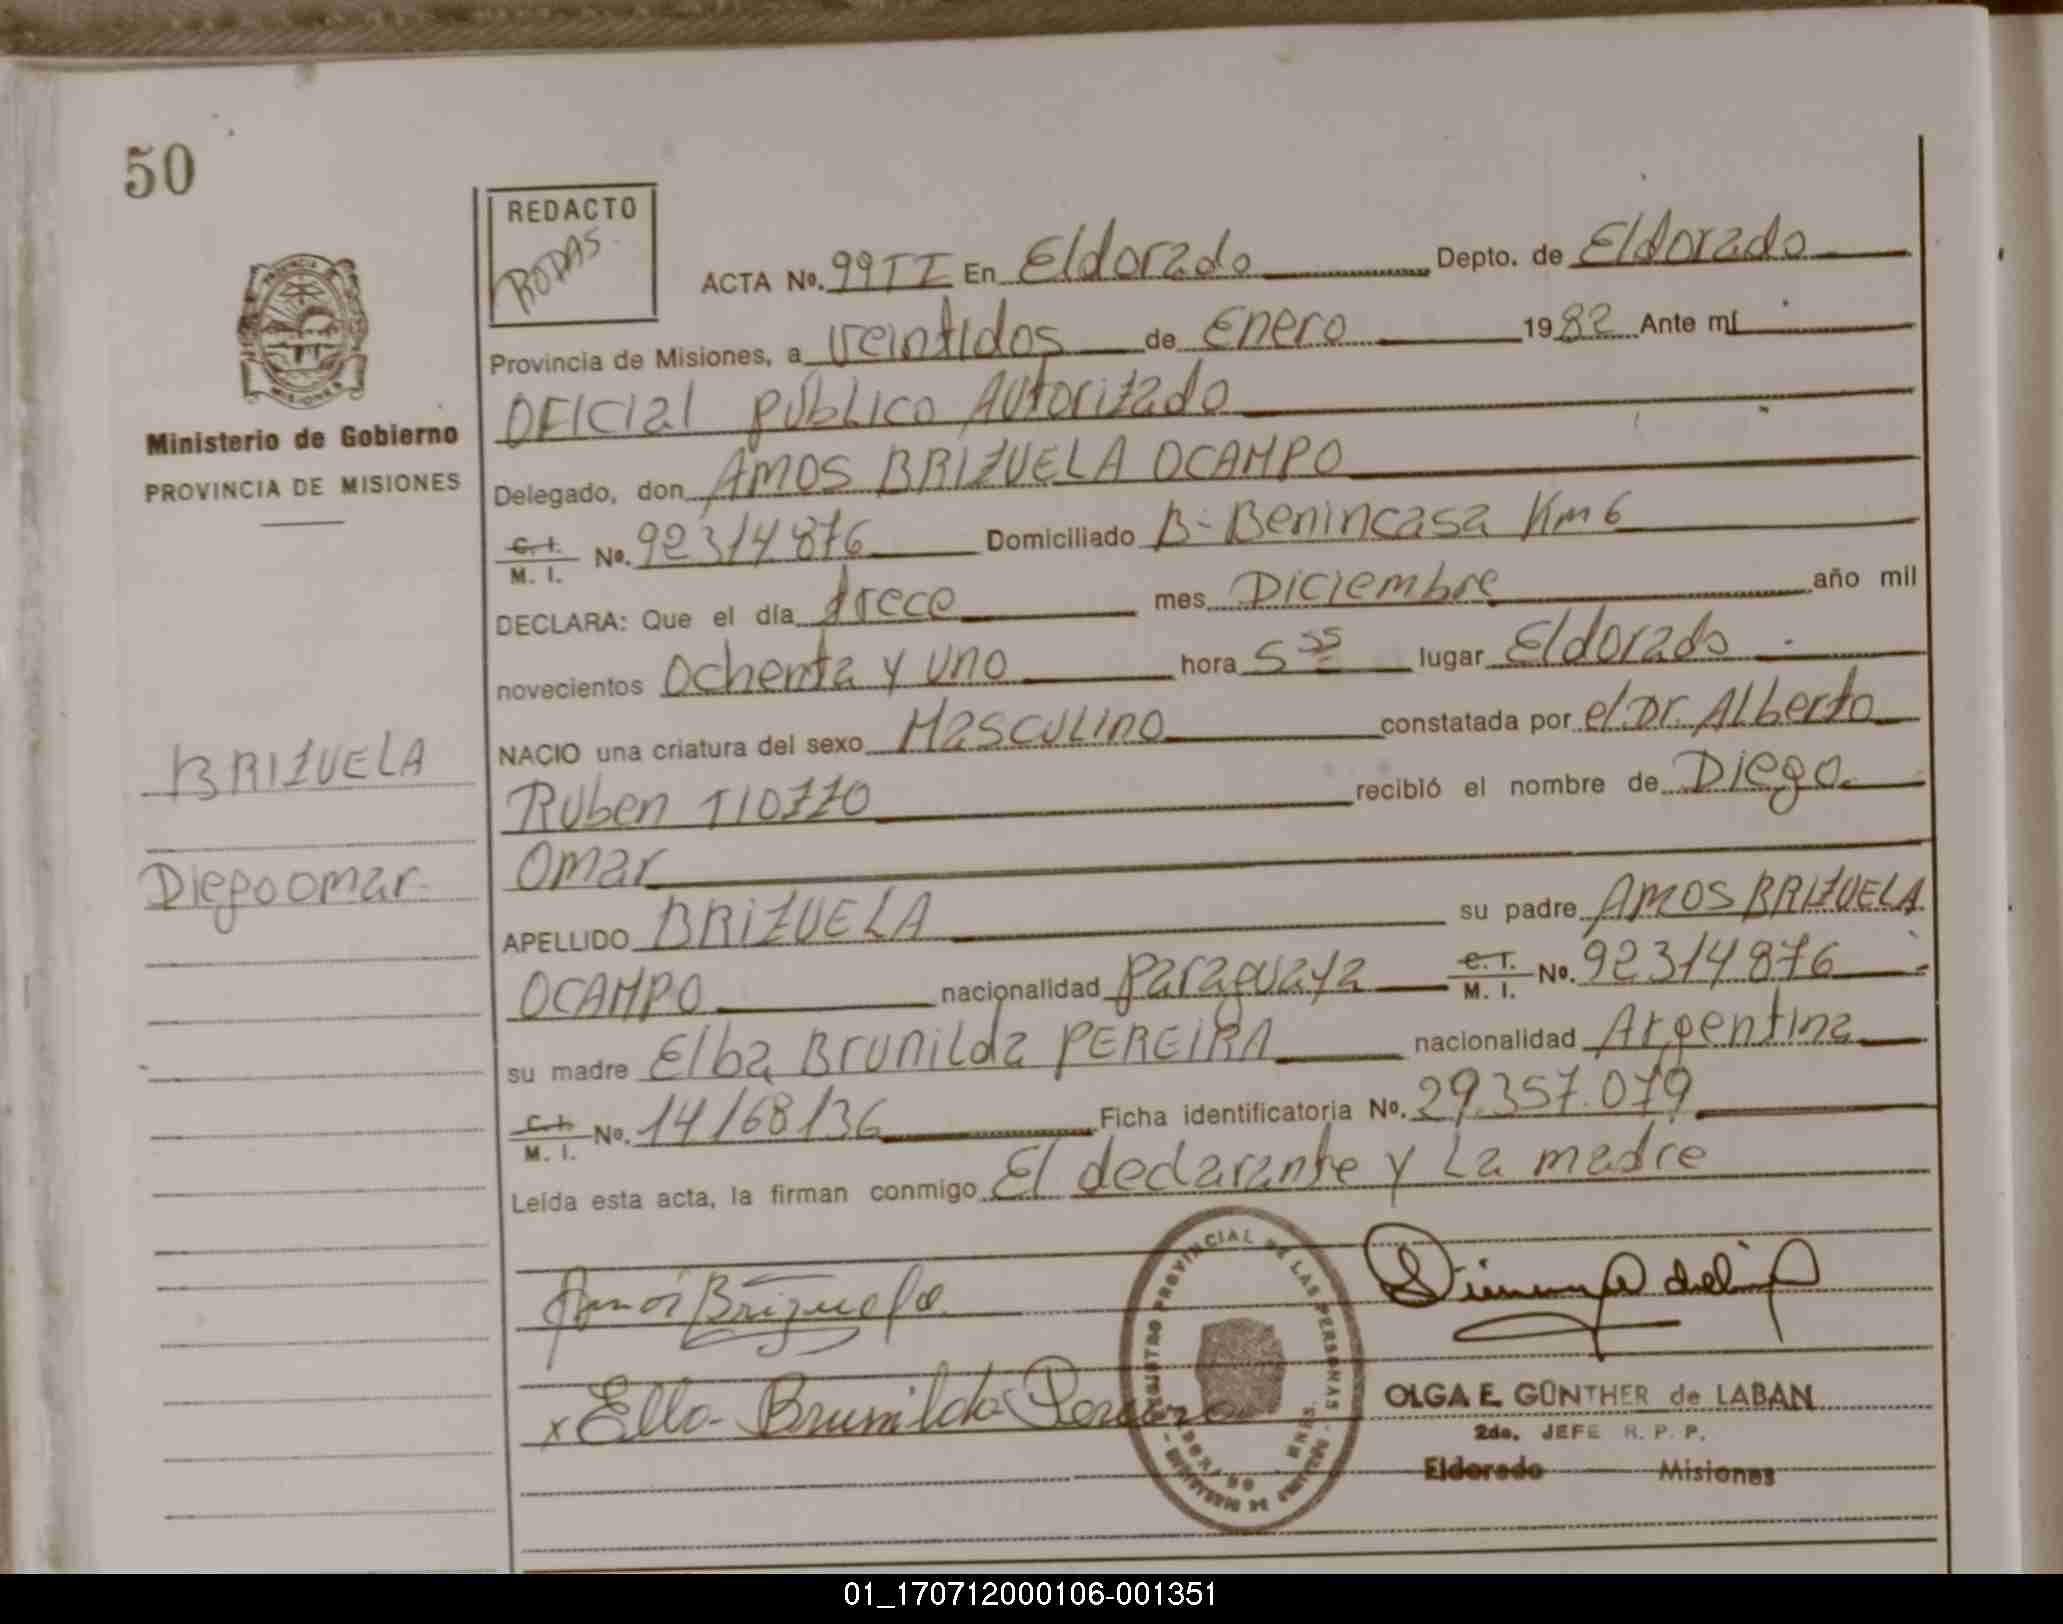 50
REDACTO
RODAS
ACTA No. 99TI En Eldorado Depto. de Eldorado
Provincia de Misiones, a veintidos de Enero 1982 Ante mí
OFICIal público Autorizado
Ministerio de Gobierno
PROVINCIA DE MISIONES
Delegado, don AMOS BRIZUELA OCAMPO
C. I. M. I. No. 92314876 Domiciliado B- Benincasa Km 6
DECLARA: Que el día trece mes Diciembre año mil
novecientos ochenta y uno hora 5 55 lugar Eldorado
NACIO una criatura del sexo Masculino constatada por el Dr. Alberto
Ruben TIOZZO recibió el nombre de Diego
Omar
BRIZUELA
Diego omar
APELLIDO BRIZUELA su padre AMOS BRIZUELA
OCAMPO nacionalidad paraguaya C. I. M. I. No. 92314876
su madre Elba Brunilda PEREIRA nacionalidad Argentina
C. I. M. I. No. 14168136 Ficha identificatoria No. 29.357.079
Leída esta acta, la firman conmigo El declarante y La madre
Amós Brizuela
Elba Brunilda Pereira
REGISTRO PROVINCIAL DE LAS PERSONAS
ELDORADO MNES.
OLGA E. GÜNTHER de LABAN
2do. JEFE R. P. P.
Eldorado Misiones
01_170712000106-001351